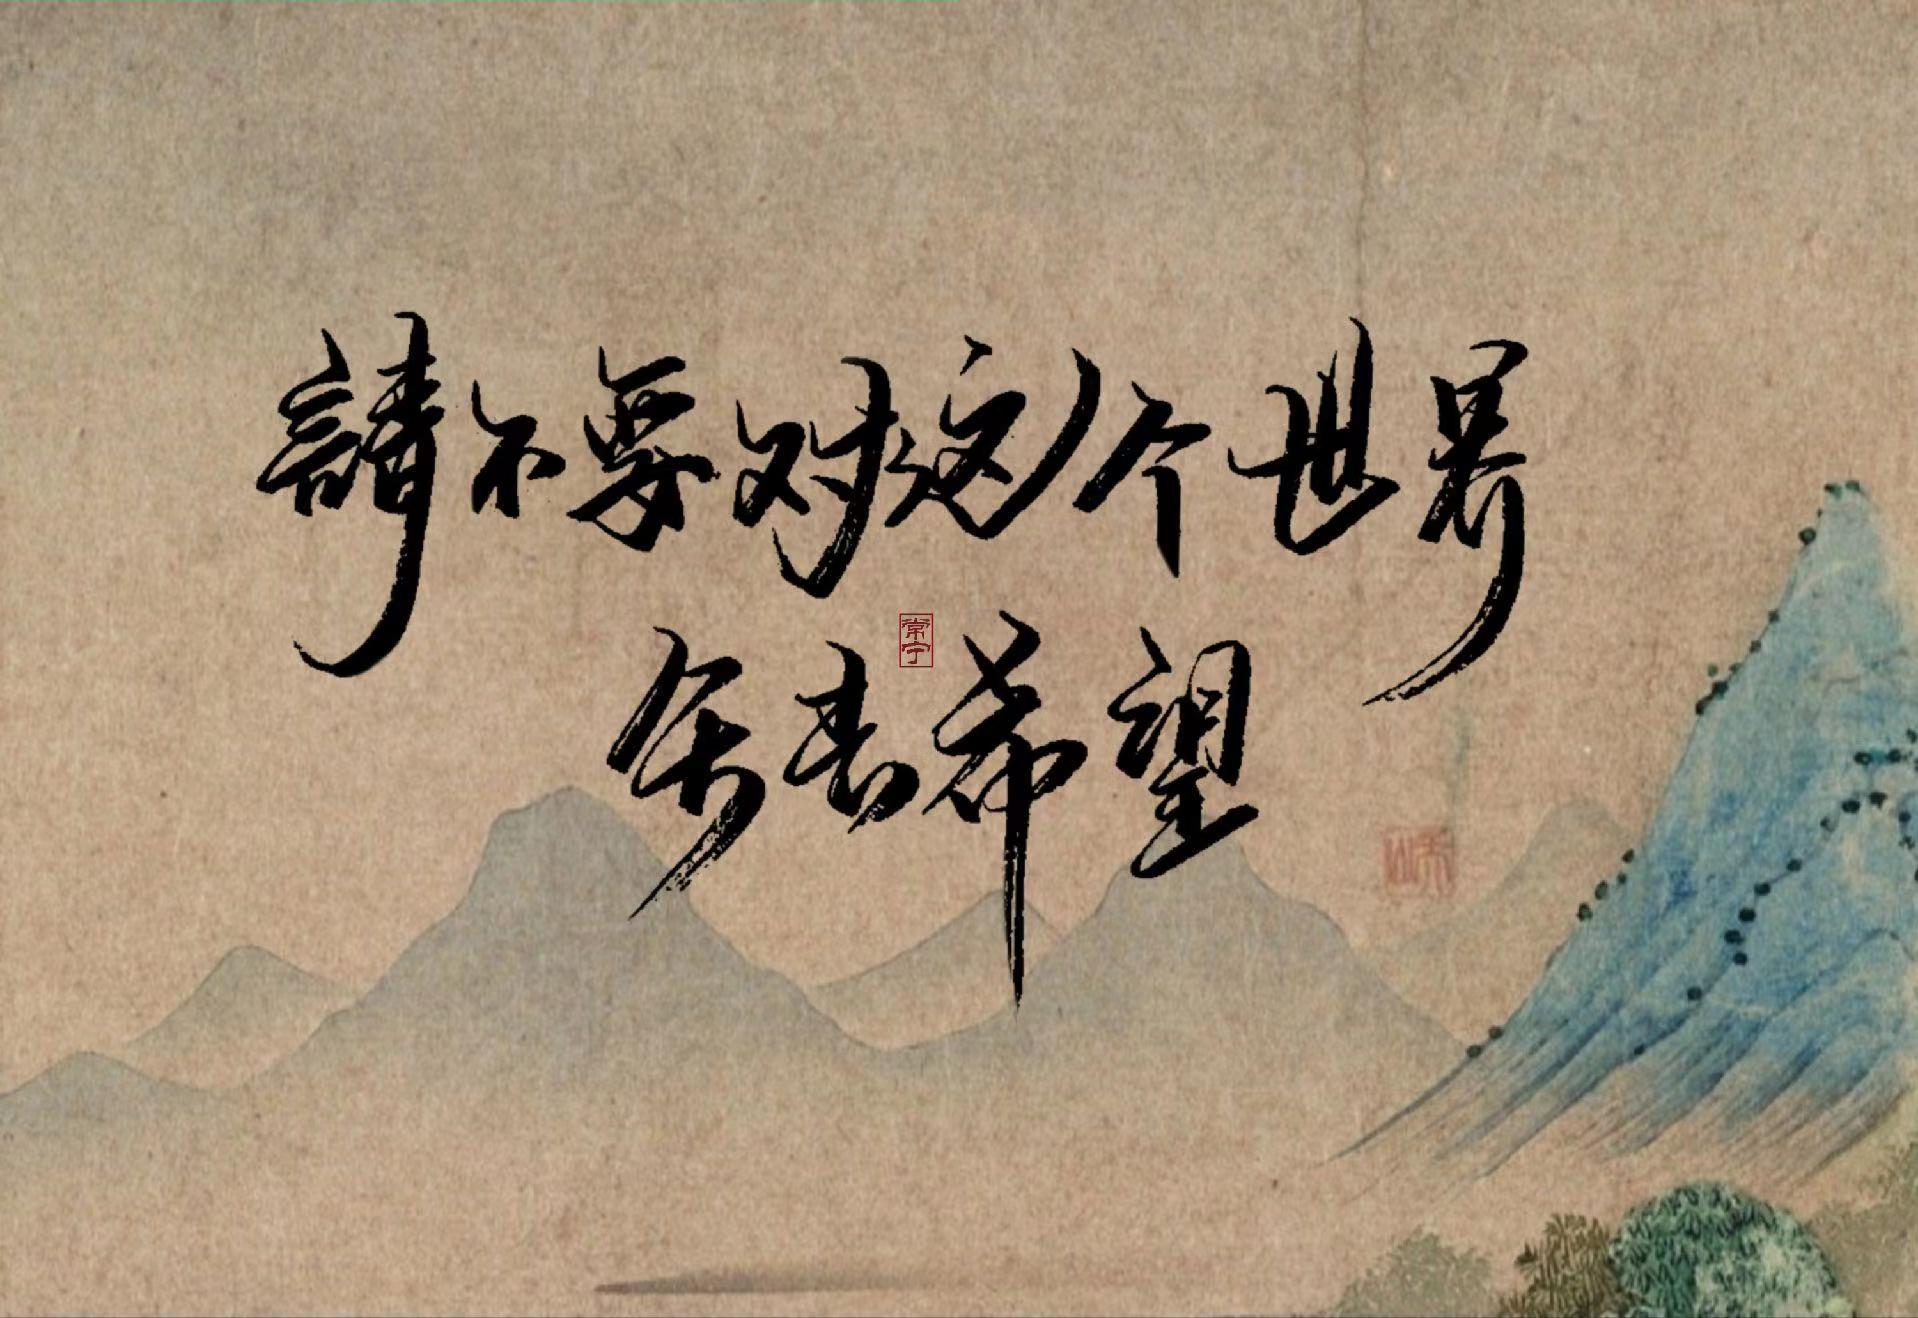 請不要对这个世界
失去希望
常宁